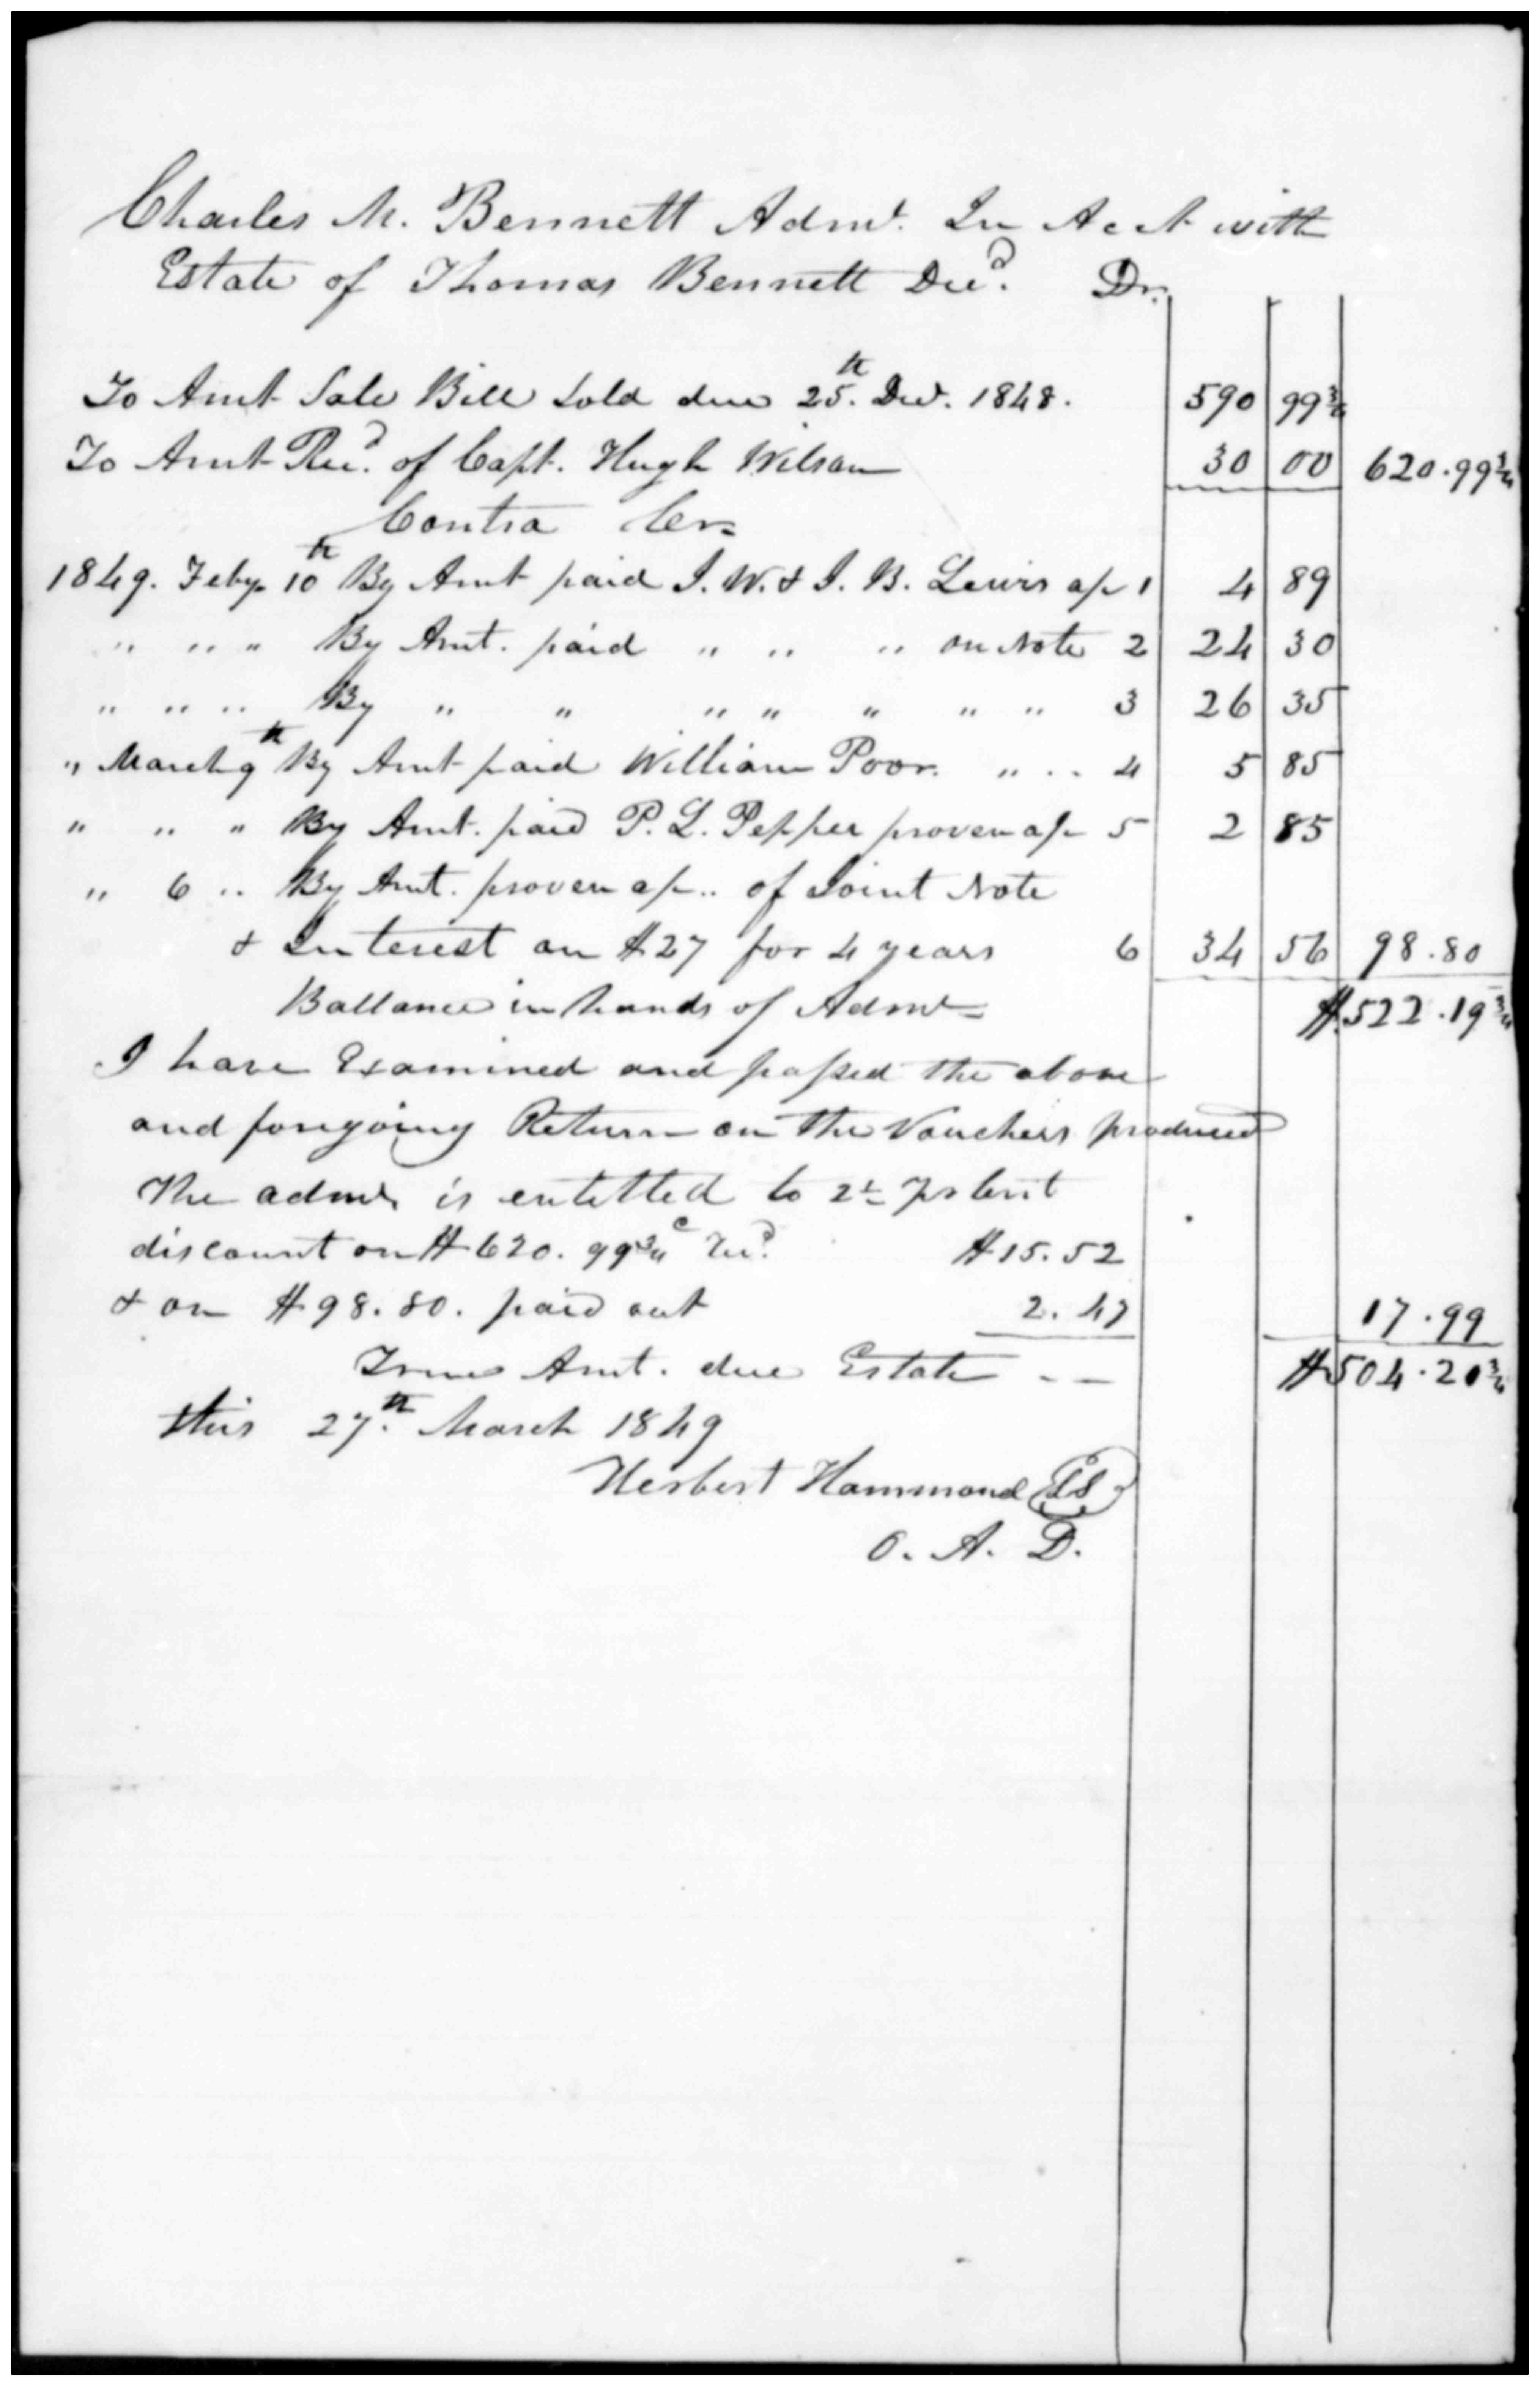 Charles M. Bennett Admr. In Acct with
Estate of Thomas Bennett Decd. Dr.
To Amt Sale Bill Sold due 25th. Decr. 1848. 590 99¾
To Amt Recd. of Capt. Hugh Wilson 30 00 620.99¾
Contra Cr=
1849. Feby. 10th By Amt paid J. W. & J. B. Lewis a/c 1 4 89
" " " By Amt. paid " " " on Note 2 24 30
" " " By " " " " " " " 3 26 35
" March 9th By Amt paid William Poor. " " 4 5 85
" " " By Amt. paid P. L. Pepper proven a/c 5 2 85
" 6 " By Amt. proven a/c " of Joint Note
& Interest on $27 for 4 years 6 34 56 98.80
Ballance in hands of Admr= $522.19¾
I have Examined and passed the above
and foregoing Return on the Vouchers produced
The admr. is entitled to 2½ pr Cent
discount on $620.99¾c Recd. $15.52
& on $98.80. paid out 2.47 17.99
True Amt. due Estate -- $504.20¾
this 27.th March 1849
Herbert Hammond LS
O. A. D.